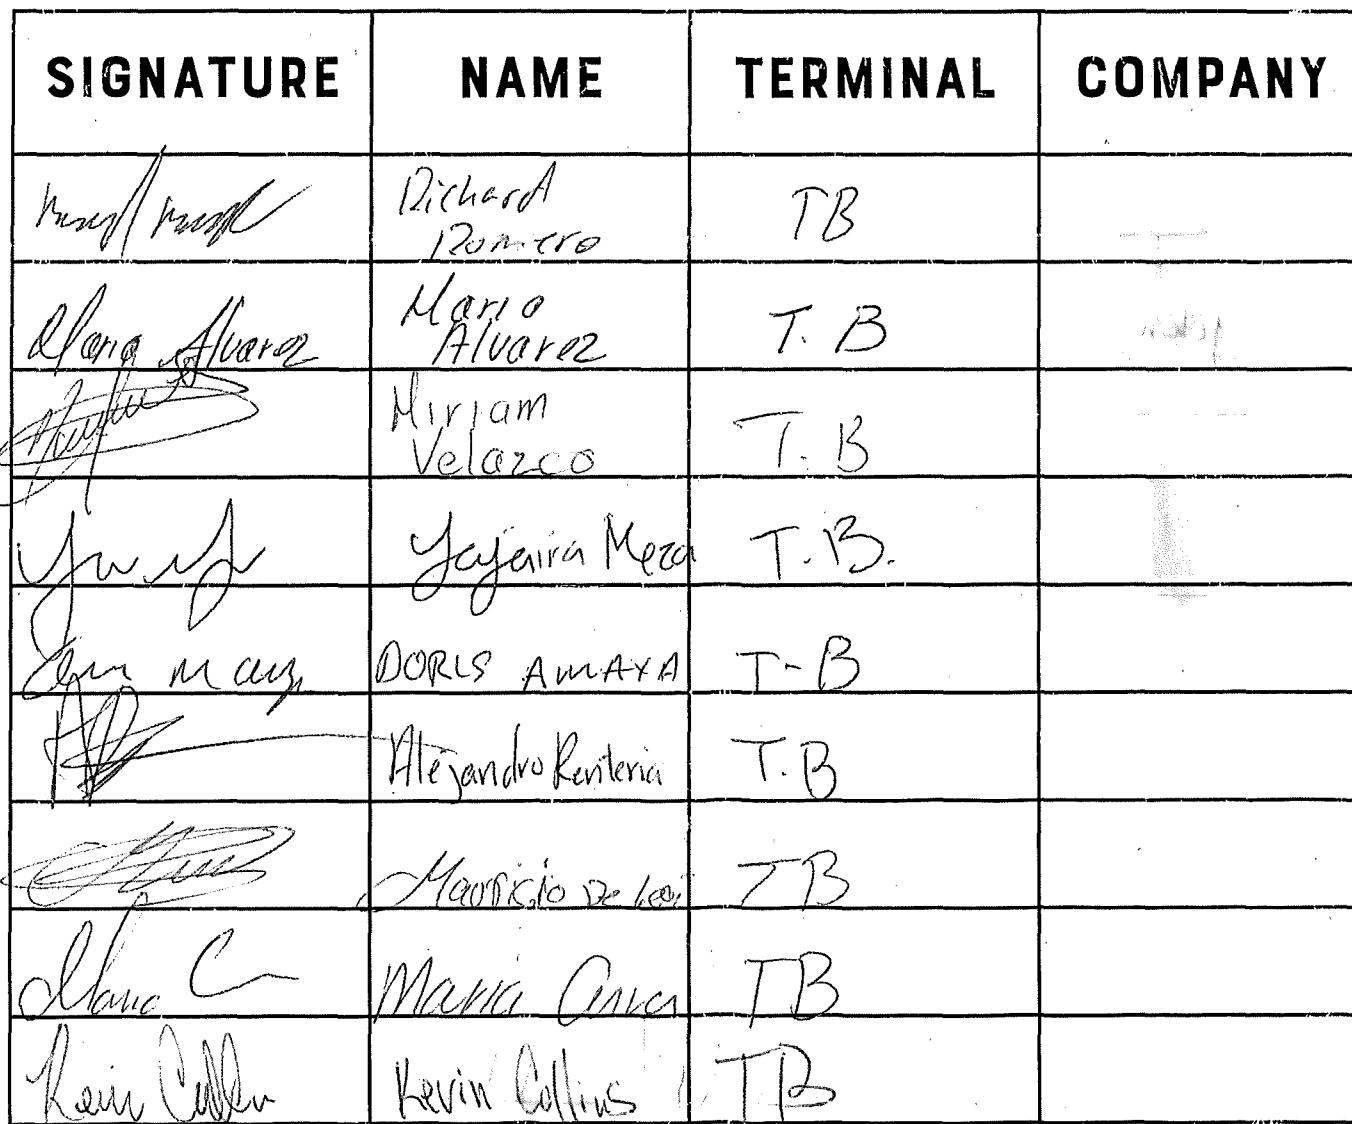 SIGNATURE NAME TERMINAL COMPANY
Richard
Romero
TB
Maria Alvarez
Mario
Alvarez
T. B
Miriam
Velazco
T. B
Yajaira Meza T.B.
DORIS AMAYA T-B
Alejandro Renteria T.B
Mauricio De Leon TB
Maria C Maria TB
Kevin Collins Kevin Collins TB